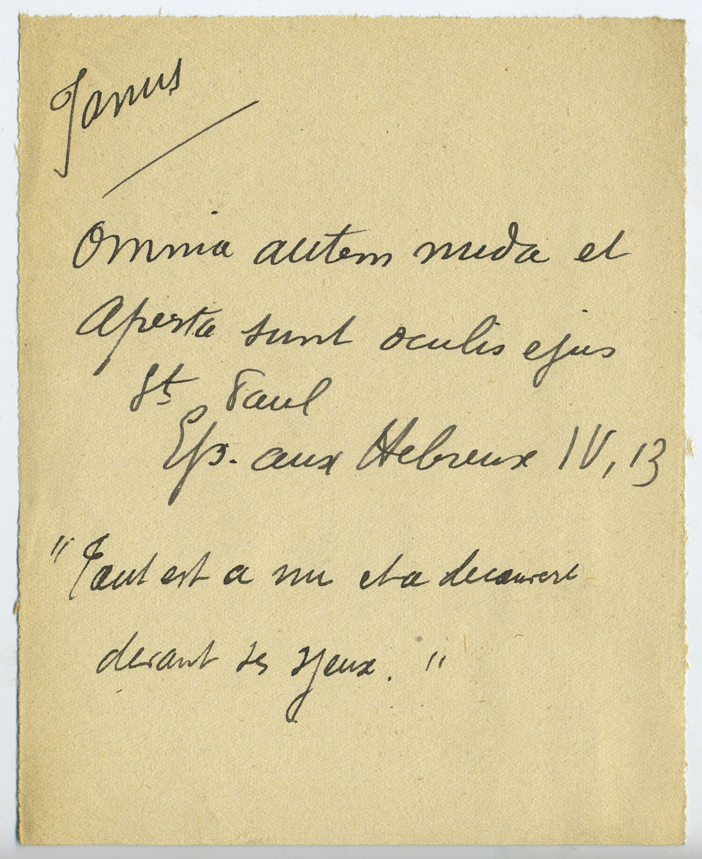 Janus
Omnia autem nuda et
Aperta sunt oculis ejus
St Paul
Ep. aux Hebreux IV, 13
"Tout est a nu et a decouvert
devant ses yeux. "